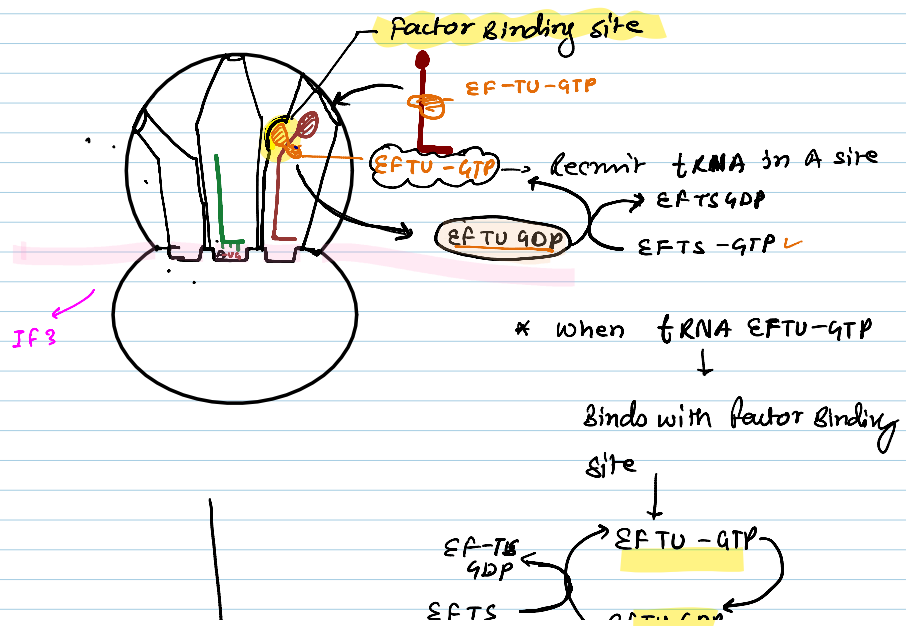 Factor Binding site
EF-TU-GTP
EFTU-GTP → Recruit tRNA in A site
EFTSGDP
EFTU GDP
EFTS-GTP ✓
IF3
* when tRNA EFTU-GTP
↓
Binds with factor Binding
site
↓
EFTU-GTP
EF-TS
GDP
EFTS